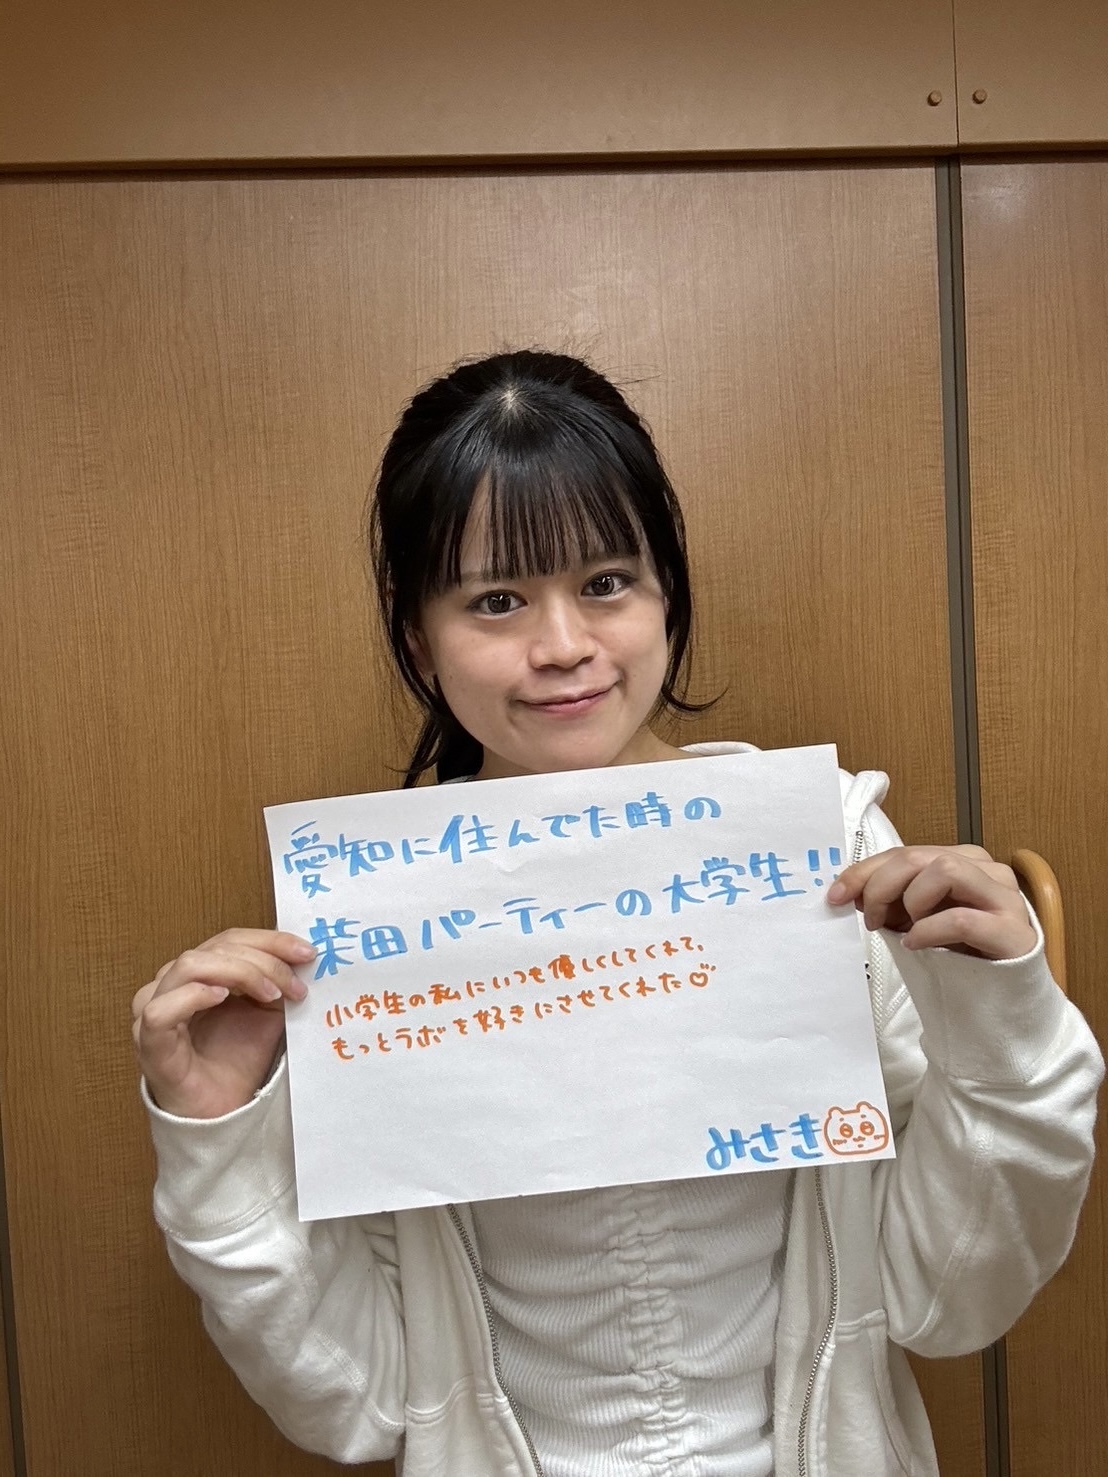 愛知に住んでた時の
柴田パーティーの大学生!!
小学生の私にいつも優しくしてくれて、
もっとラボを好きにさせてくれた♡
みさき